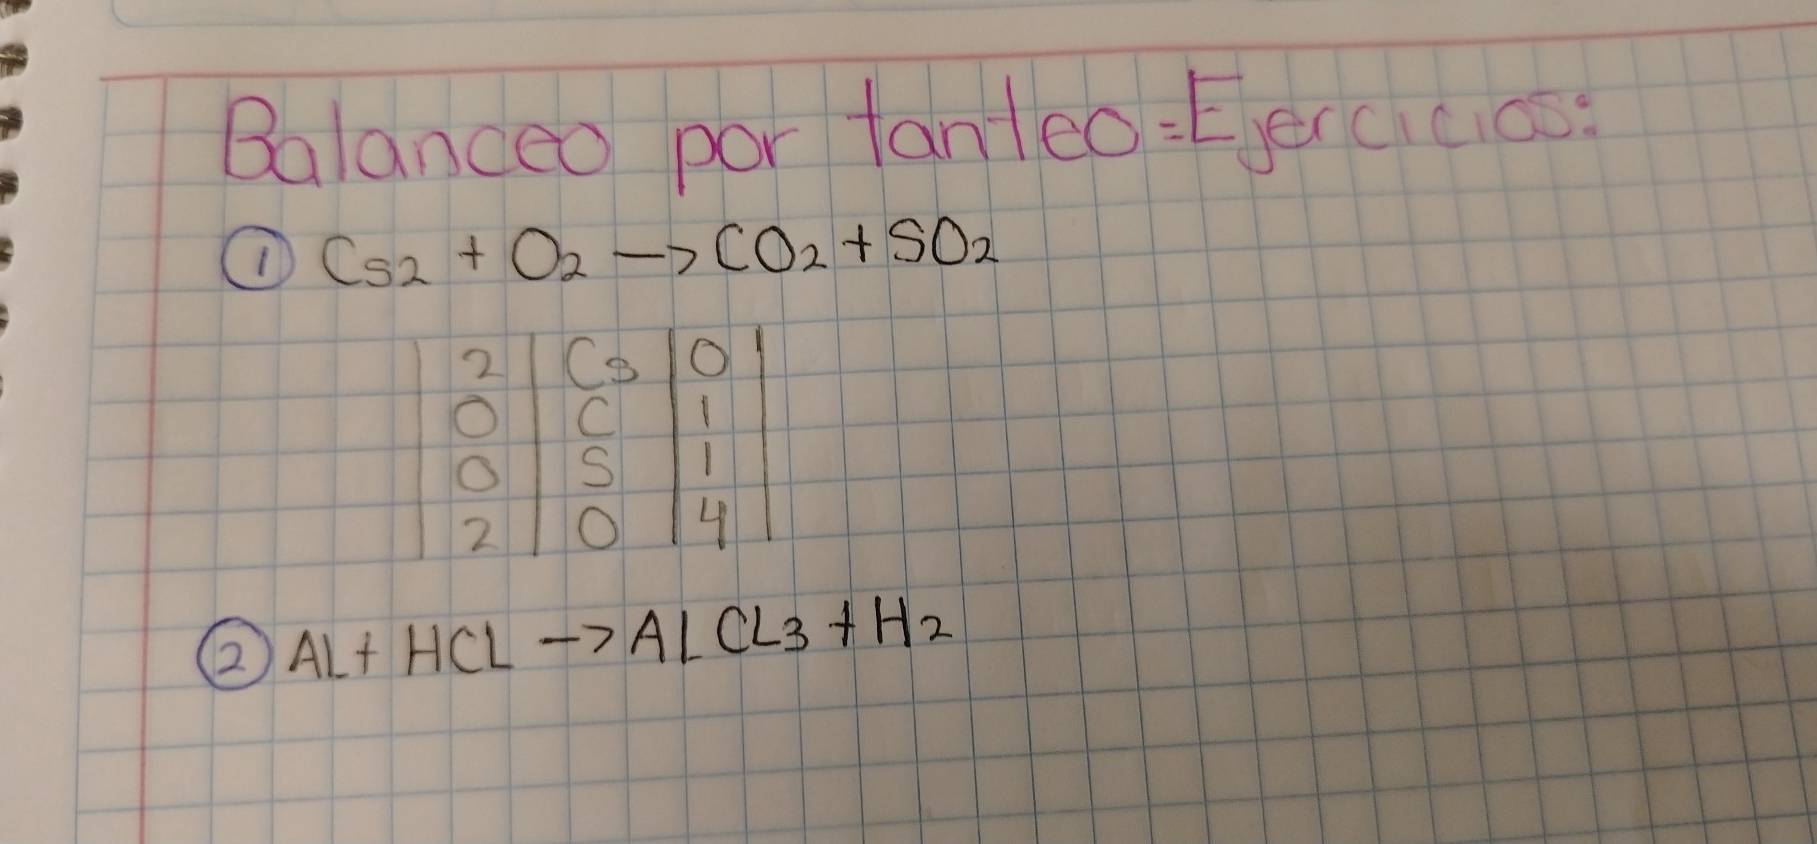 Balanceo por tanteo=Ejercicios:
① Cs2 + O2 → CO2 + SO2
| 2 | Cs | 0 |
| 0 | C | 1 |
| 0 | S | 1 |
| 2 | O | 4 |
② AL + HCL → AL CL3 + H2